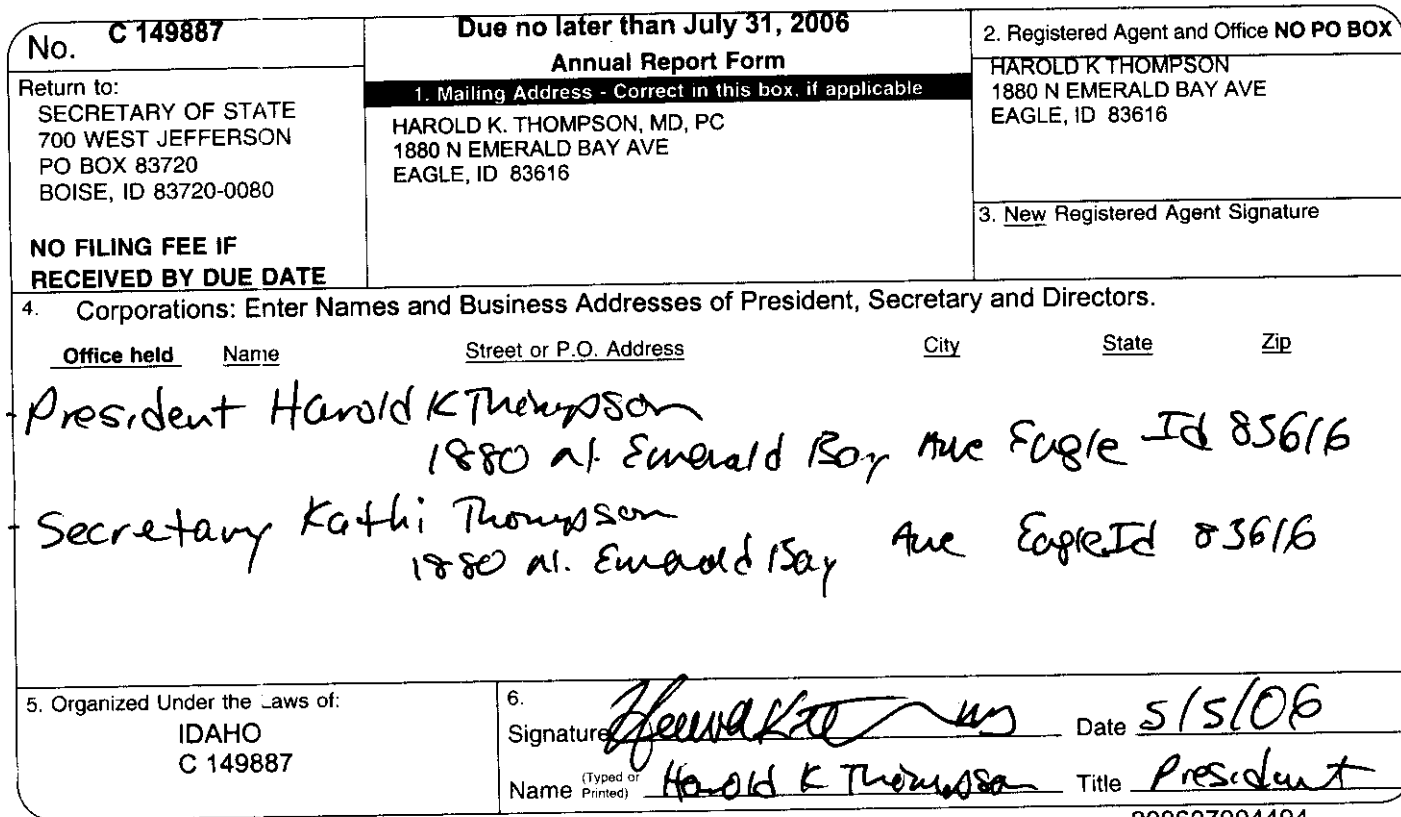 No. C 149887
Return to:
SECRETARY OF STATE
700 WEST JEFFERSON
PO BOX 83720
BOISE, ID 83720-0080
NO FILING FEE IF
RECEIVED BY DUE DATE
Due no later than July 31, 2006
Annual Report Form
1. Mailing Address - Correct in this box, if applicable
HAROLD K. THOMPSON, MD, PC
1880 N EMERALD BAY AVE
EAGLE, ID 83616
2. Registered Agent and Office NO PO BOX
HAROLD K THOMPSON
1880 N EMERALD BAY AVE
EAGLE, ID 83616
3. New Registered Agent Signature
4. Corporations: Enter Names and Business Addresses of President, Secretary and Directors.
Office held Name Street or P.O. Address City State Zip
President Harold K Thompson
1880 N. Emerald Bay Ave Eagle Id 83616
Secretary Kathi Thompson
1880 N. Emerald Bay Ave Eagle Id 83616
5. Organized Under the Laws of:
IDAHO
C 149887
6.
Signature Date 5/5/06
Name (Typed or Printed) Harold K Thompson Title President